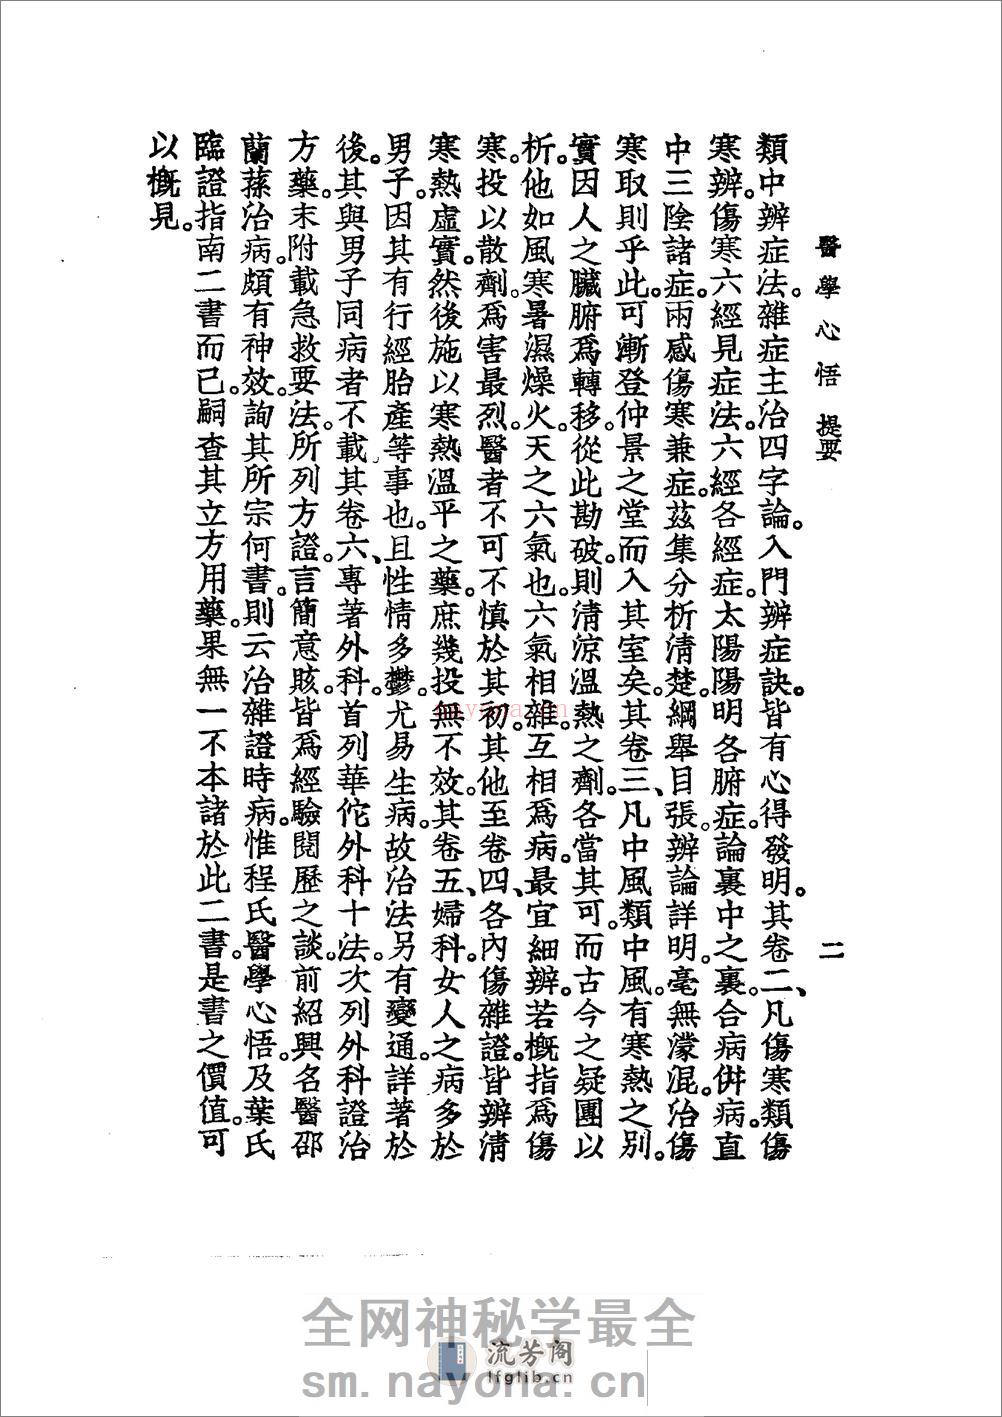 醫學心悟 提要
二
類中辨症法。雜症主治四字論。入門辨症訣。皆有心得發明。其卷二、凡傷寒類傷
寒辨。傷寒六經見症法。六經各經症。太陽陽明各腑症。論裏中之裏。合病併病。直
中三陰諸症。兩感傷寒兼症。茲集分析清楚。綱舉目張。辨論詳明。毫無濛混。治傷
寒取則乎此。可漸登仲景之堂。而入其室矣。其卷三、凡中風類中風。有寒熱之別。
實因人之臟腑爲轉移。從此勘破。則淸涼溫熱之劑。各當其可。而古今之疑團以
析。他如風寒暑濕燥火。天之六氣也。六氣相雜。互相爲病。最宜細辨。若概指爲傷
寒。投以散劑。爲害最烈。醫者不可不愼於其初。其他至卷四、各內傷雜證。皆辨淸
寒熱虛實。然後施以寒熱溫平之藥。庶幾投無不效。其卷五、婦科。女人之病多於
男子。因其有行經胎產等事也。且性情多鬱。尤易生病。故治法另有變通。詳著於
後。其與男子同病者。不載。其卷六、專著外科。首列華佗外科十法。次列外科證治
方藥。末附載急救要法。所列方證。言簡意賅。皆爲經驗閱歷之談。前紹興名醫邵
蘭蓀治病。頗有神效。詢其所宗何書。則云治雜證時病。惟程氏醫學心悟。及葉氏
臨證指南二書而已。嗣查其立方用藥。果無一不本諸於此二書。是書之價值。可
以槪見。
nayona.cn
全网神秘学最全
流芳阁
lfglib.cn
sm.nayona.cn